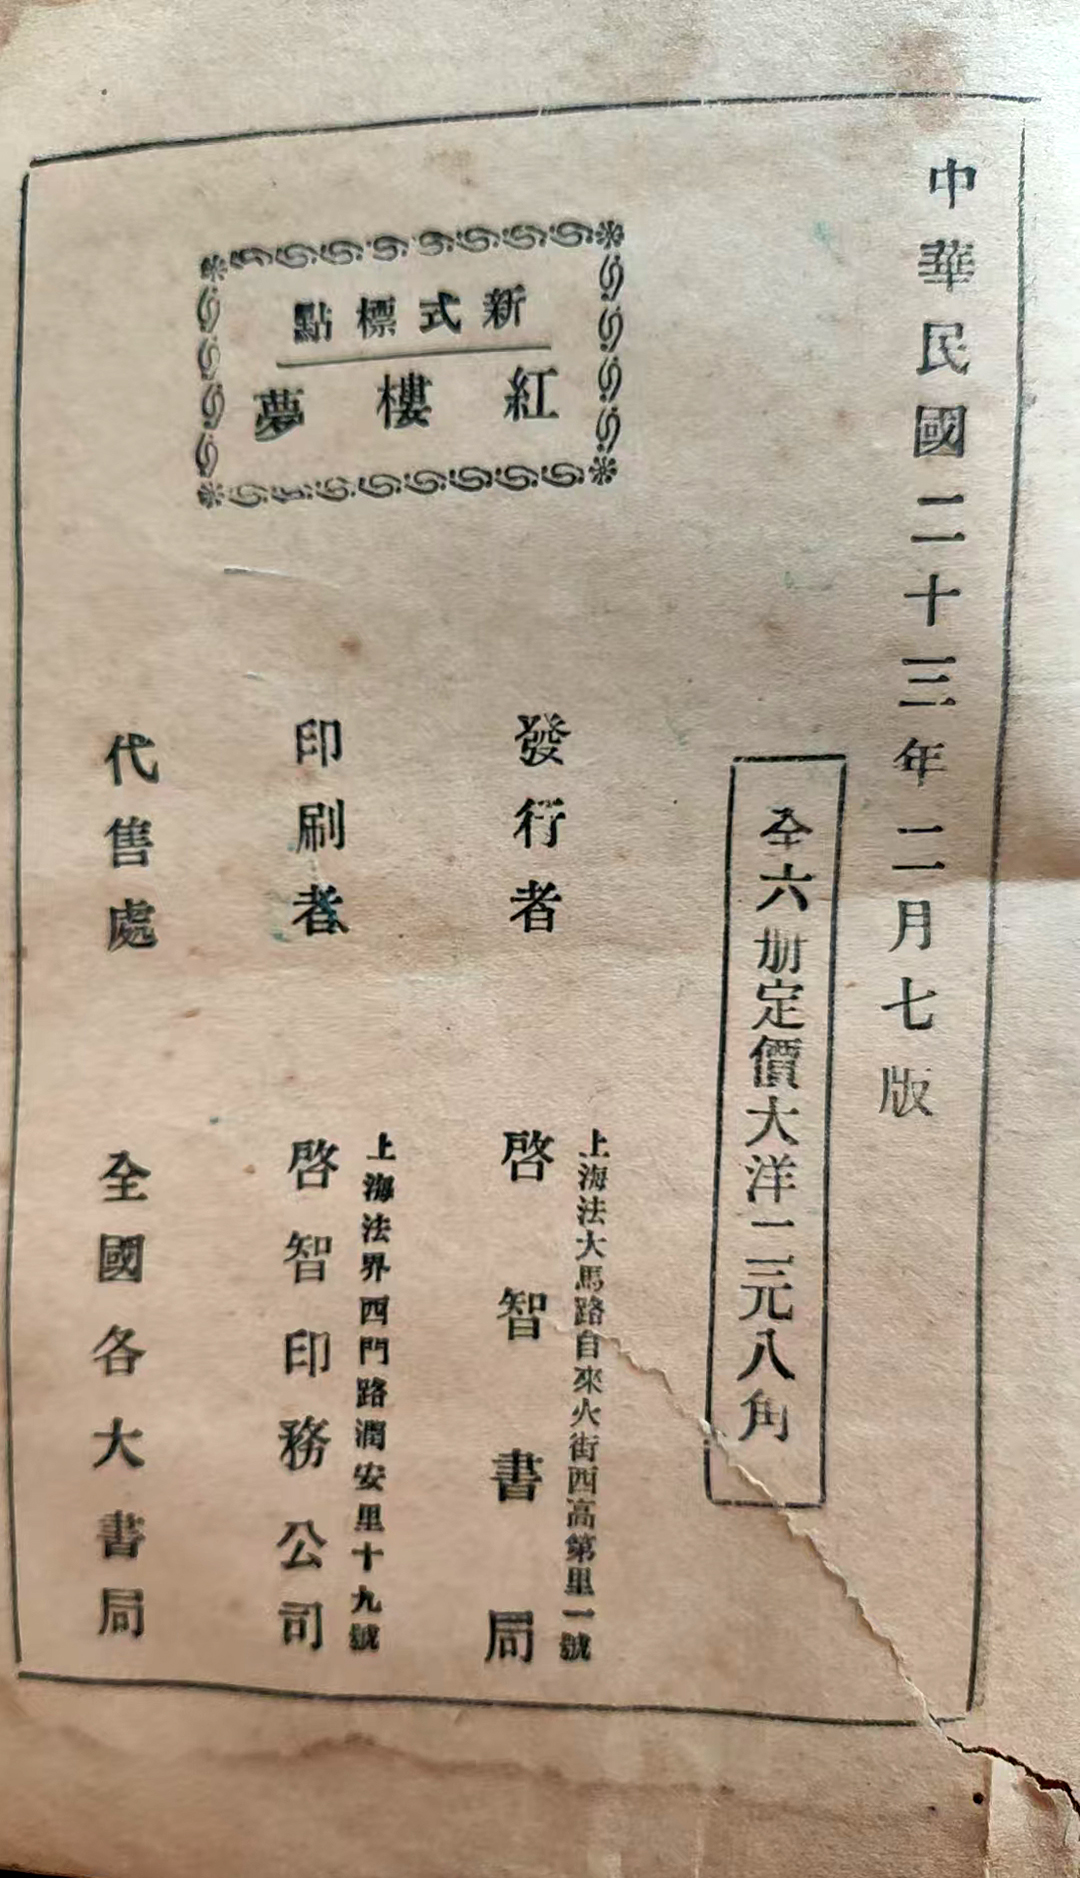 中華民國二十三年二月七版
全六册定價大洋二元八角
新式標點
紅樓夢
發行者
上海法大馬路自來火街西高第里一號
啓智書局
印刷者
上海法界西門路潤安里十九號
啓智印務公司
代售處
全國各大書局